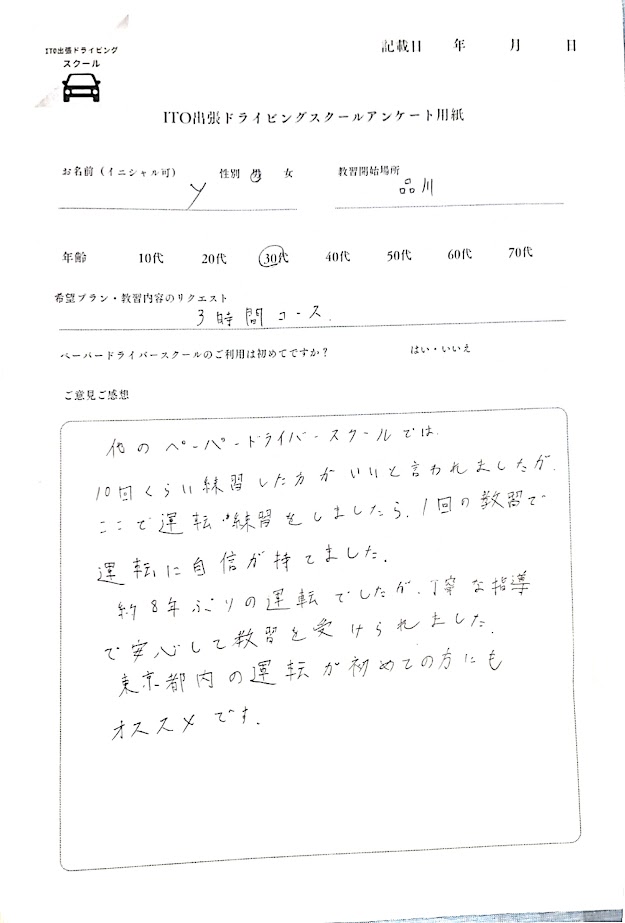 ITO出張ドライビング
スクール
記載日 年 月 日
ITO出張ドライビングスクールアンケート用紙
お名前（イニシャル可） Y 性別 男 女 教習開始場所 品川
年齢 10代 20代 30代 40代 50代 60代 70代
希望プラン・教習内容のリクエスト
3時間コース.
ペーパードライバースクールのご利用は初めてですか？ はい・いいえ
ご意見ご感想
他のペーパードライバースクールでは.
10回くらい練習した方がいいと言われましたが.
ここで運転練習をしましたら、1回の教習で
運転に自信が持てました.
約8年ぶりの運転でしたが、丁寧な指導
で安心して教習を受けられました.
東京都内の運転が初めての方にも
オススメです.